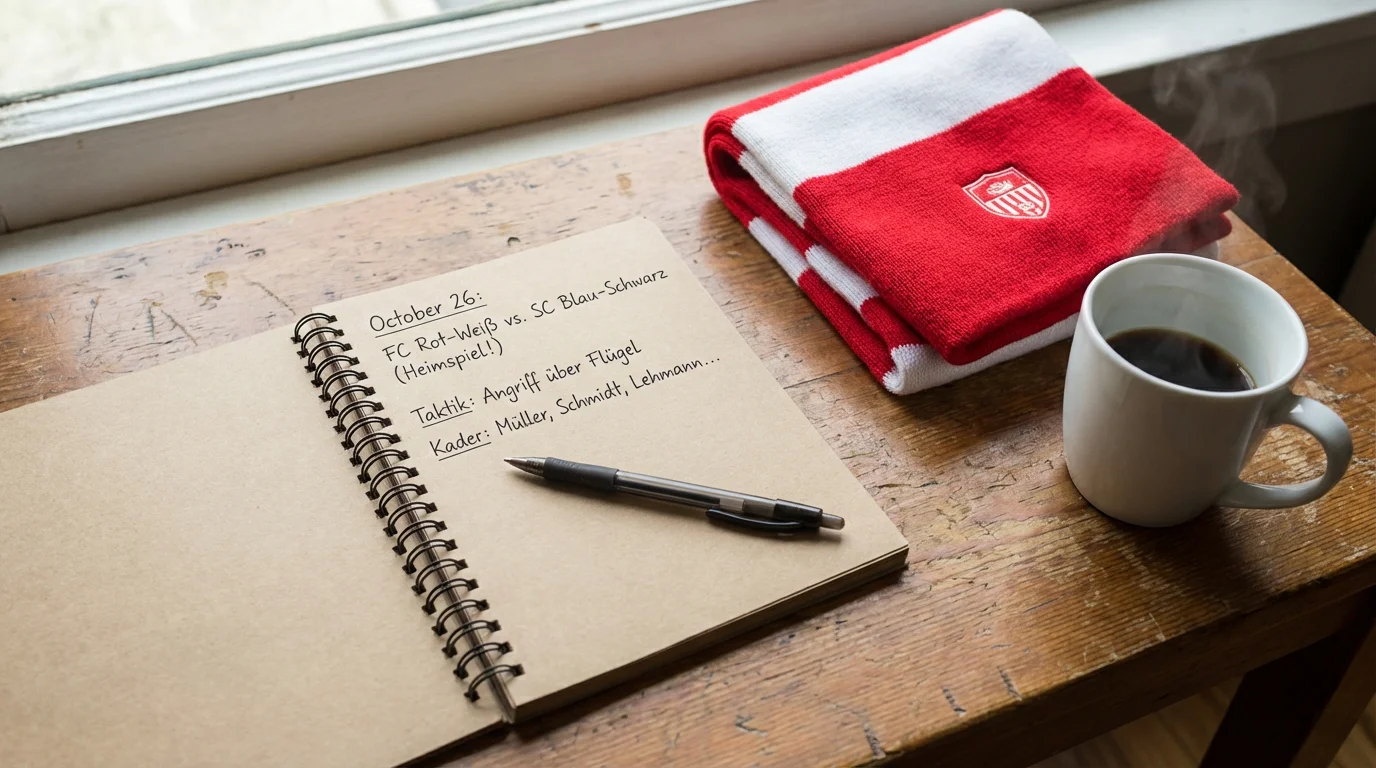 October 26:
FC Rot-Weiß vs. SC Blau-Schwarz
(Heimspiel!)
Taktik: Angriff über Flügel
Kader: Müller, Schmidt, Lehmann...